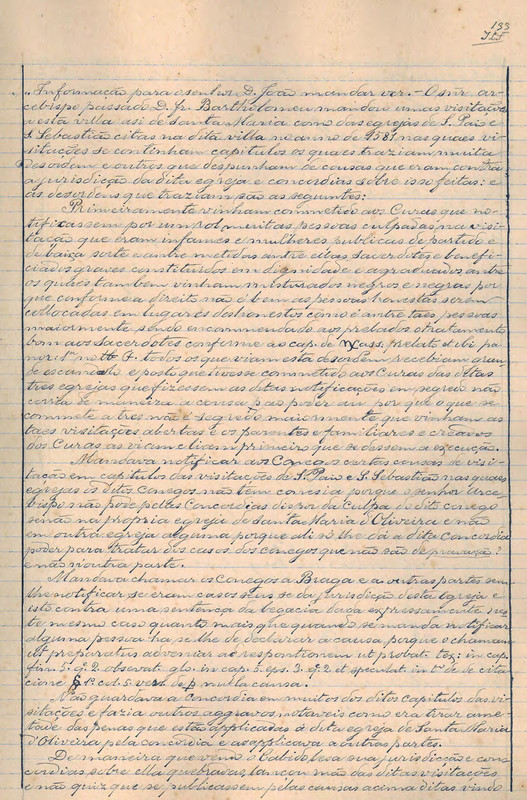 133
„Informação para o senhor D. João mandar ver. - O snr. ar-
cebispo passado D. fr. Bartholomeu mandou umas visitações
a esta villa asi de santa Maria como das egrejas de S. Paio e
S. Sebastião citas na dita villa no anno de 1581 nas quaes vi-
sitações se continham capitulos os quaes traziam muita
desordem e outros que despunham de cousas que eram contra
a jurisdicção da dita egreja e concordias sobre isso feitas: e
as desordens que traziam são as seguintes:
Primeiramente vinham commetido aos Curas que no-
tificassem por um rol muitas pessoas culpadas na visi-
tação que eram infames e mulheres publicas de partido e
de baixa sorte e antre metidas antre ellas, sacerdotes e benefi-
ciados graves constituidos em dignidade e agraduados, antre
os quaes tambem vinham misturados negros e negras por
que conforme a direito não é bem as pessoas honestas serem
collocadas em lugares deshonestos como é antre taes pessoas
maiormente sendo encommendado aos prelados o tratamento
bom aos sacerdotes conforme ao cap. de
todos os que viam esta desordem recebiam gran
de escandalo e posto que tivesse commetido aos Curas das ditas
tres egrejas que fizessem as ditas notificações em segredo não
corria de maneira a cousa pas poder ser por que o que se
commete a tres não é segredo maiormente que vinham as
taes visitações abertas e os parentes e familiares e creados
dos Curas as viam e liam primeiro que se dessem a execução.
Mandava notificar aos Conegos certas cousas de visi-
tação em capitulos das visitações de S. Paio e S. Sebastião nas quaes
egrejas os ditos Conegos não têm conesia porque o senhor Arce
bispo não pode pellas Concordias dispor da culpa do dito conego
senão na propria egreja de Santa Maria d'Oliveira e não
em outra egreja alguma porque ali só lhe dá a dita concordia
poder para tratar dos casos dos conegos que não são de
e não n'outra parte.
Mandava chamar os Conegos a Braga e a outras partes sem
lhe notificar se eram casos seus se da jurisdição d'esta Egreja e
isto contra uma sentença da legacia dada expressamente n'es
te mesmo caso quanto mais que quando se manda notificar
alguma pessoa ha se lhe de declarar a causa, porque o chamam
ut preparatus adveniat ad respontionem ut probat tex: in cap.
fin. 5. q. 2 observat. glo. in cap. 3. eps. 3. q. 2 et speculat. in tº de cita
cione § 1º col. 5 vers. nulla causa.
Não guardava a Concordia em muitos dos ditos capitulos das vi-
sitações e fazia outros aggravos notaveis como era tirar ame-
tade das penas que estão applicadas á dita egreja de Santa Maria
d'Oliveira pela concordia e as applicava a outras partes.
De maneira que vendo o Cabido lesa sua jurisdicção e con-
cordias sobre ella quebradas, lançou mão das ditas visitações
e não quiz que se publicassem pelas causas acima ditas vindo